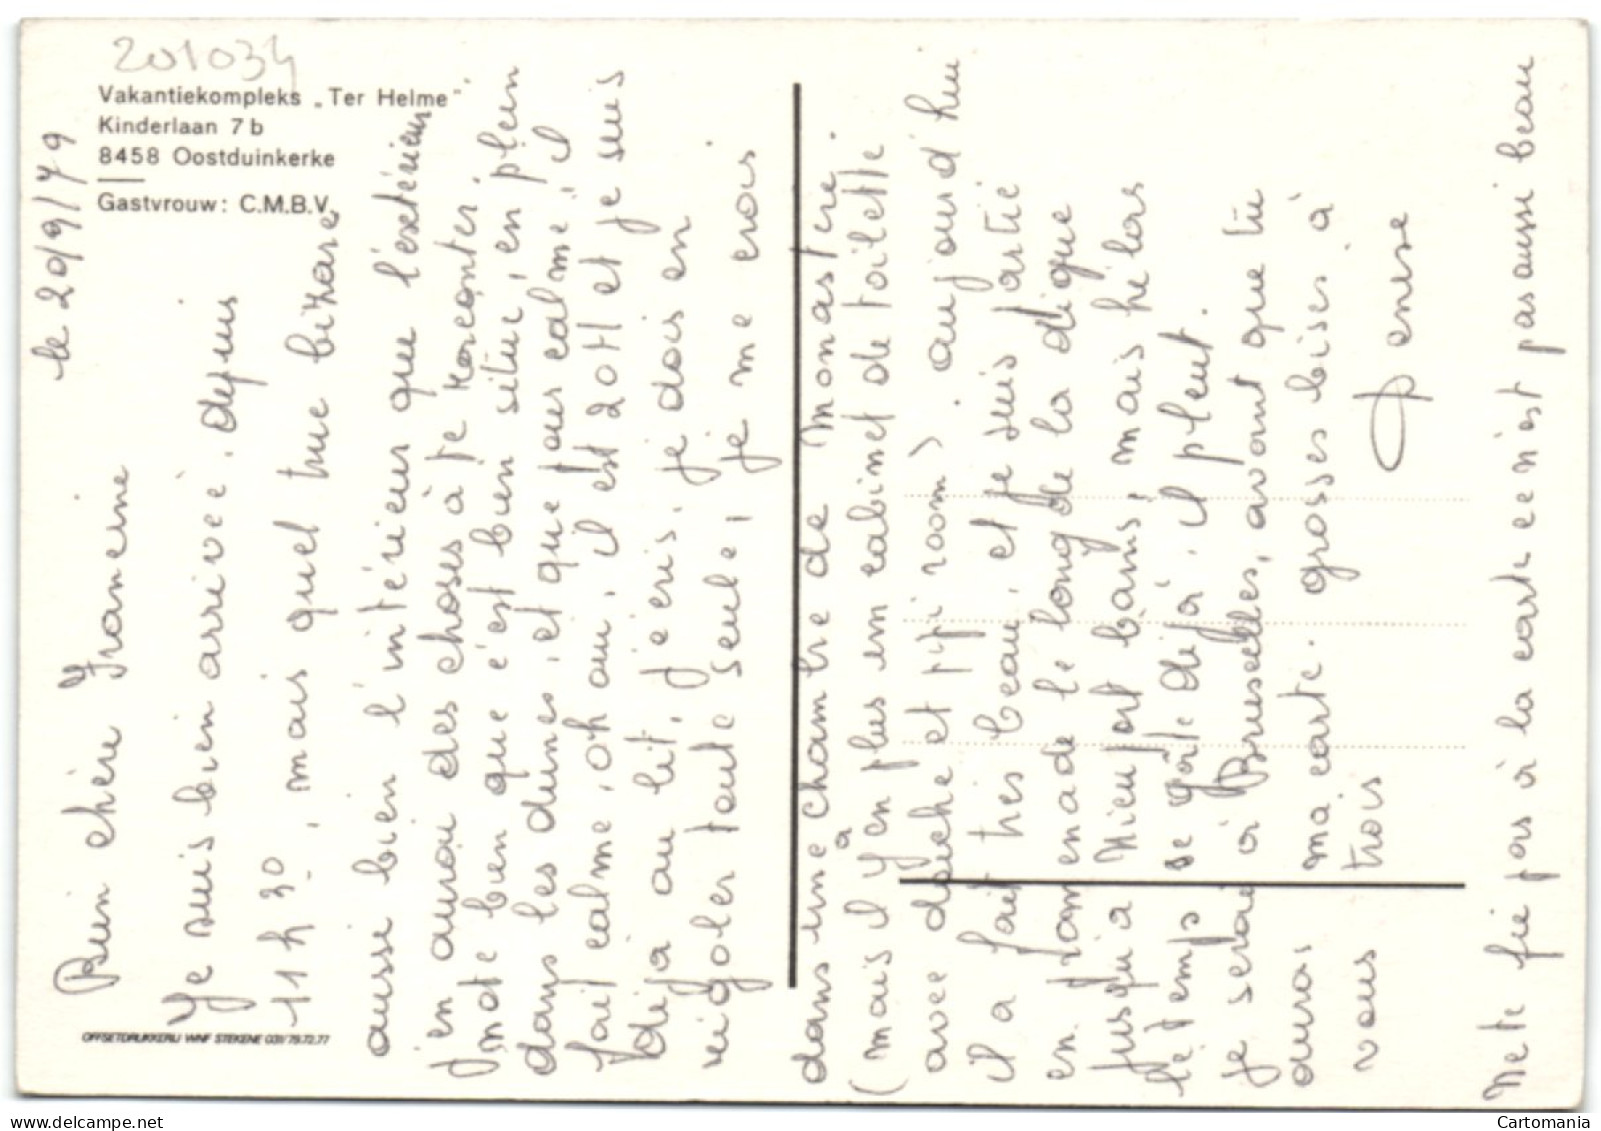 201034
Vakantiekompleks „Ter Helme"
Kinderlaan 7 b
8458 Oostduinkerke
Gastvrouw: C.M.B.V.
OFFSETDRUKKERIJ WNF STEKENE 031/79.72.77
le 20/9/79
Bien chère Francine
Je suis bien arrivée. depuis
11 h 30, mais quel truc bizare
aussi bien l'intérieur que l'extérieur
j'en aurai des choses à te raconter.
note bien que c'est bien situé, en plein
dans les dunes, et que pour calme, il
fait calme, oh oui, il est 20H et je suis
déjà au lit, j'écris, je dois en
rigoler toute seule, je me crois
dans une chambre de monastère.
(mais il y en a plus un cabinet de toilette
avec douche et pipi room). aujourd'hui
il a fait très beau, et je suis partie
en promenade le long de la digue
jusqu'à Nieuport bains, mais hélas
le temps se gâte déjà, il pleut.
je serai à Bruxelles, avant que tu
auras ma carte. grosses bises à
vous trois
Denise
Ne te fie pas à la carte ce n'est pas aussi beau
Cartomania